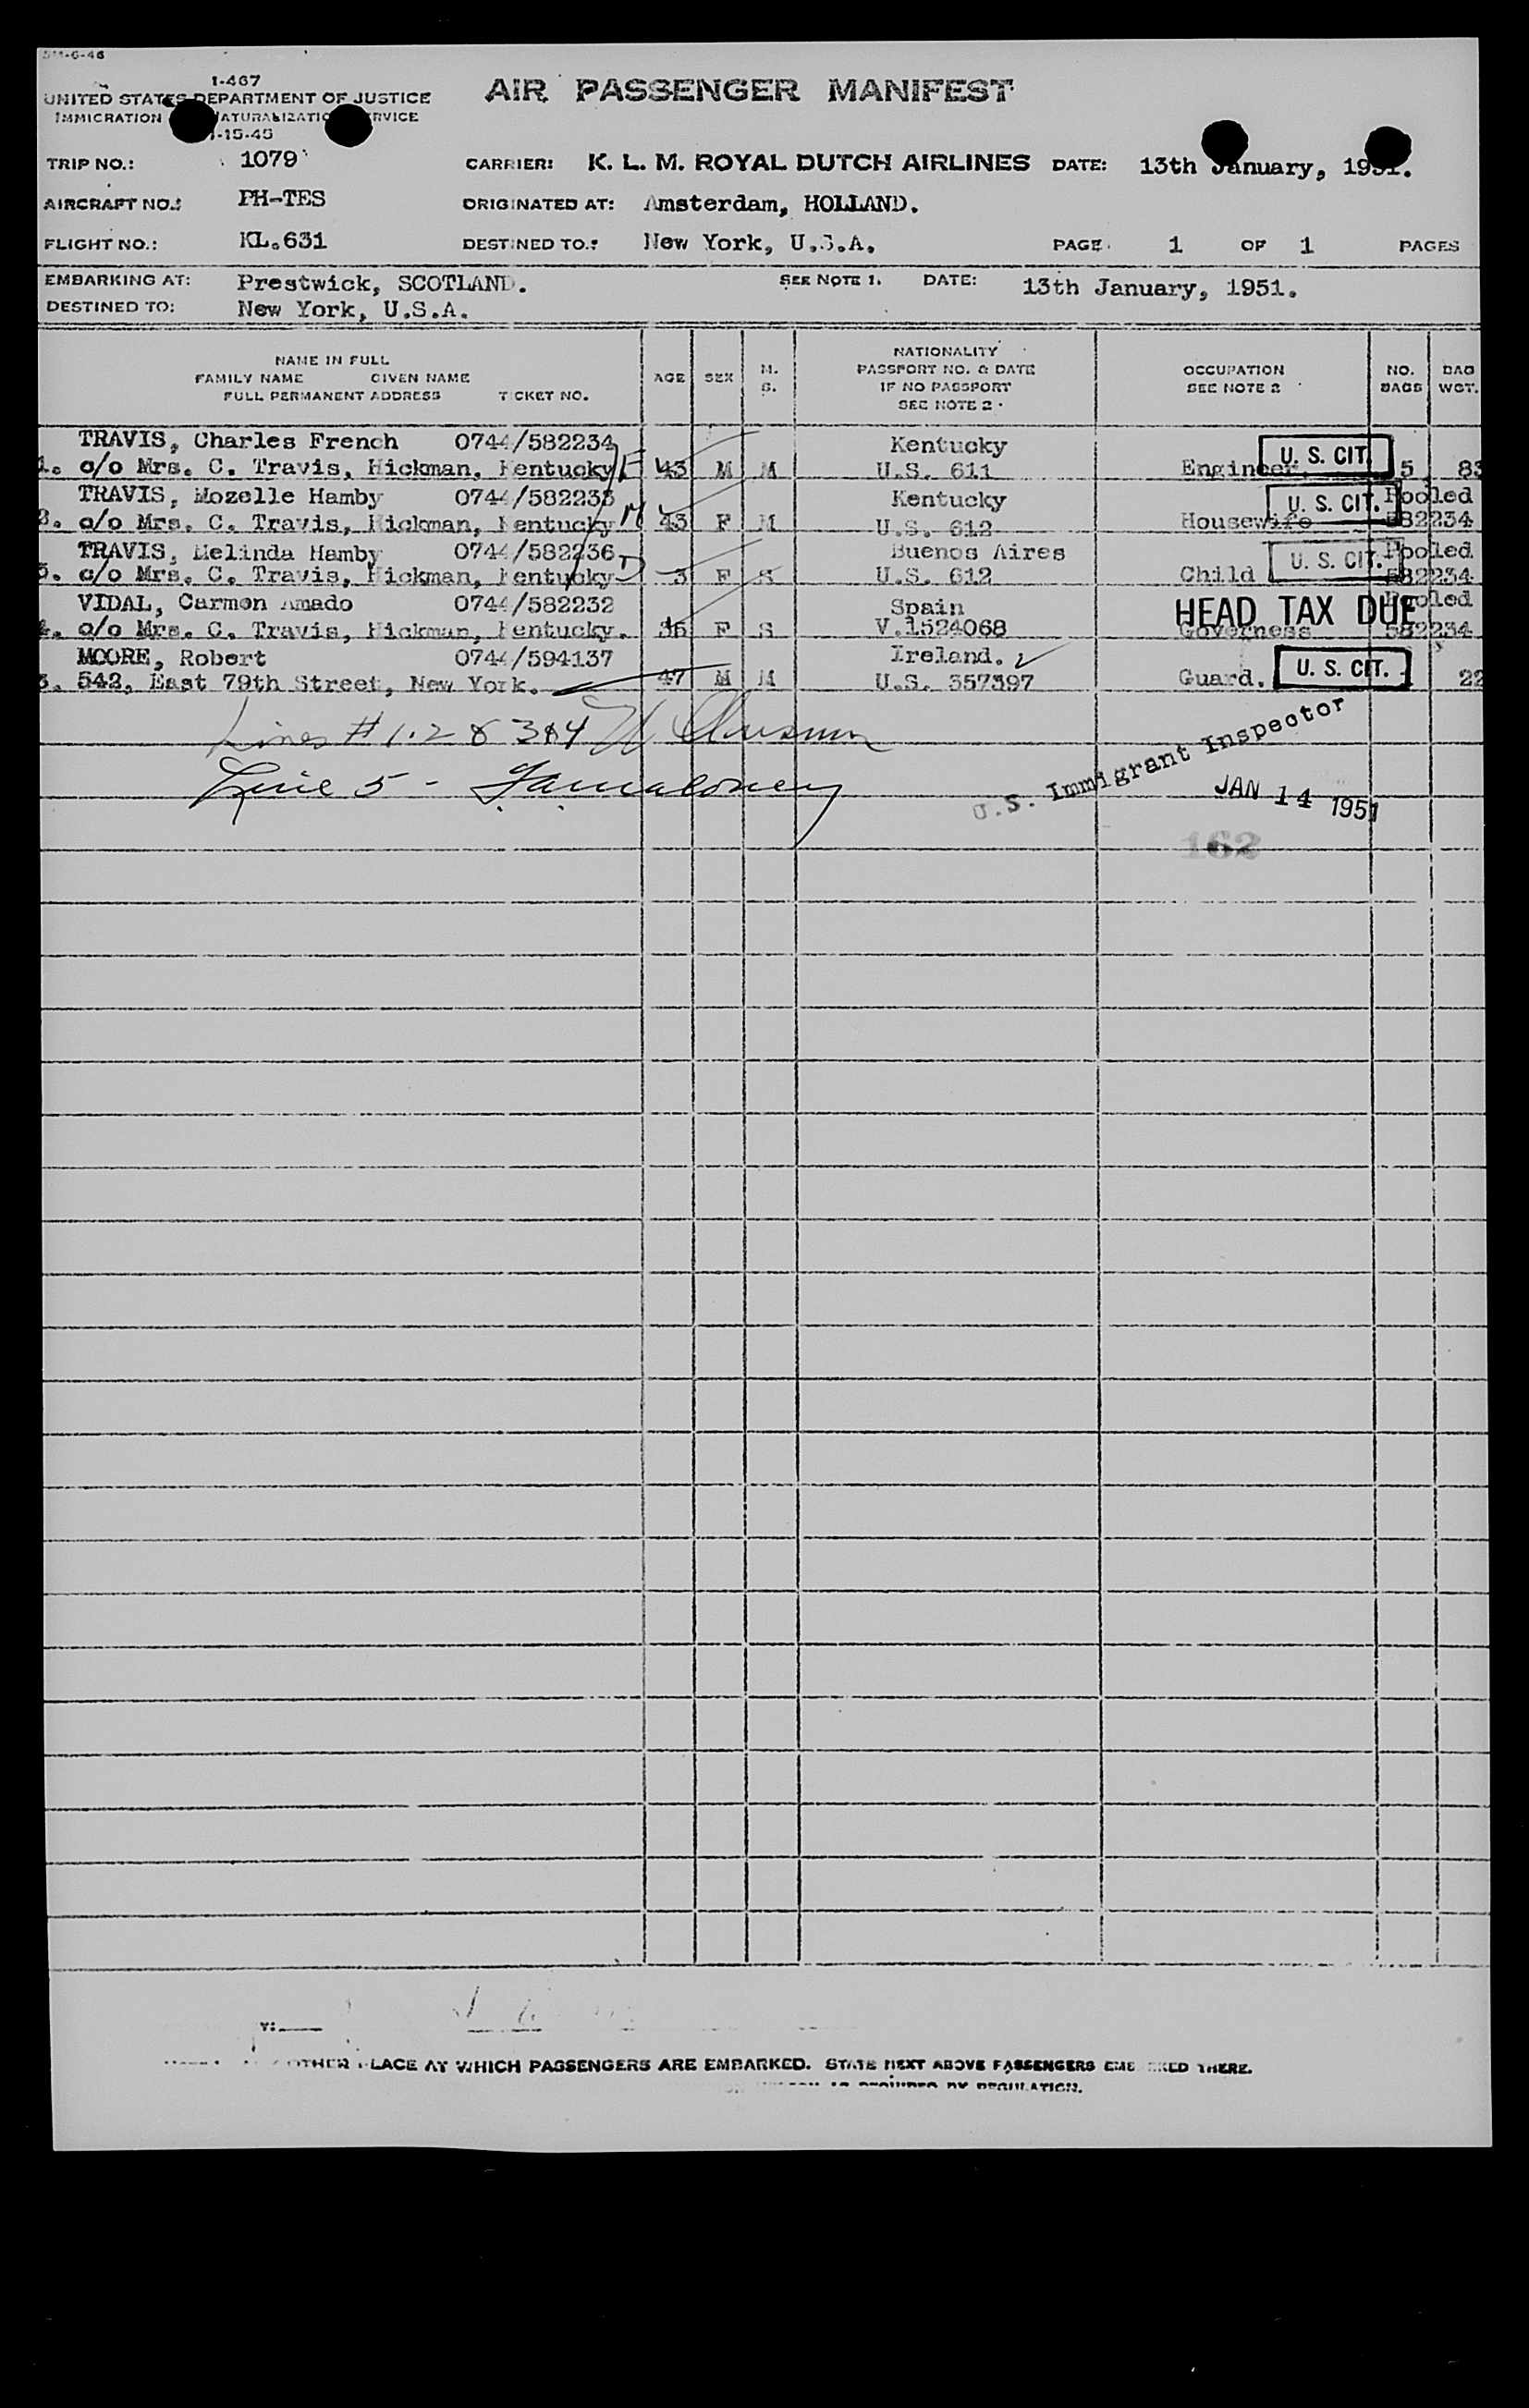 I-467
UNITED STATES DEPARTMENT OF JUSTICE
AIR PASSENGER MANIFEST
IMMIGRATION NATURALIZATION SERVICE
-15-45
TRIP NO.: 1079 CARRIER: K. L. M. ROYAL DUTCH AIRLINES DATE: 13th January, 1951.
AIRCRAFT NO.: PH-TES ORIGINATED AT: Amsterdam, HOLLAND.
FLIGHT NO.: KL.631 DESTINED TO.: New York, U.S.A. PAGE 1 OF 1 PAGES
EMBARKING AT: Prestwick, SCOTLAND. SEE NOTE 1. DATE: 13th January, 1951.
DESTINED TO: New York, U.S.A.
NAME IN FULL
FAMILY NAME GIVEN NAME
FULL PERMANENT ADDRESS TICKET NO.
AGE SEX M. S.
NATIONALITY
PASSPORT NO. & DATE
IF NO PASSPORT
SEE NOTE 2
OCCUPATION
SEE NOTE 2
NO. BAGS
BAG WGT.
TRAVIS, Charles French 0744/582234 Kentucky U. S. CIT.
1. c/o Mrs. C. Travis, Hickman, Kentucky F 43 M M U.S. 611 Engineer. 5 83
TRAVIS, Mozelle Hamby 0744/582235 Kentucky U. S. CIT. Pooled
2. c/o Mrs. C. Travis, Hickman, Kentucky M 43 F M U.S. 612 Housewife 582234
TRAVIS, Melinda Hamby 0744/582236 Buenos Aires U. S. CIT. Pooled
3. c/o Mrs. C. Travis, Hickman, Kentucky D 3 F S U.S. 612 Child 582234
VIDAL, Carmen Amado 0744/582232 Spain HEAD TAX DUE Pooled
4. c/o Mrs. C. Travis, Hickman, Kentucky. 36 F S V.1524068 Governess 582234
MOORE, Robert 0744/594137 Ireland. U. S. CIT.
5. 542, East 79th Street, New York. 47 M M U.S. 357397 Guard. 22
Lines # 1.2 & 3&4
Line 5 -
U.S. Immigrant Inspector
JAN 14 1951
162
OTHER PLACE AT WHICH PASSENGERS ARE EMBARKED. STATE NEXT ABOVE PASSENGERS EMBARKED THERE.
AS REQUIRED BY REGULATION.